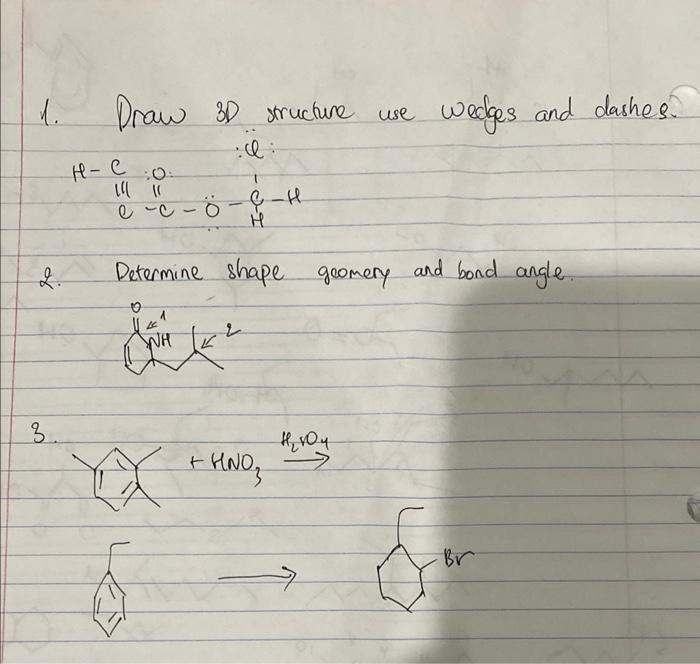 1. Draw 3D structure use wedges and dashes.
:Cl:
H - C :O:
C - C - O - C - H
H
2. Determine shape geomery and bond angle.
O
1
NH 2
3.
+ HNO3 H2SO4
Br